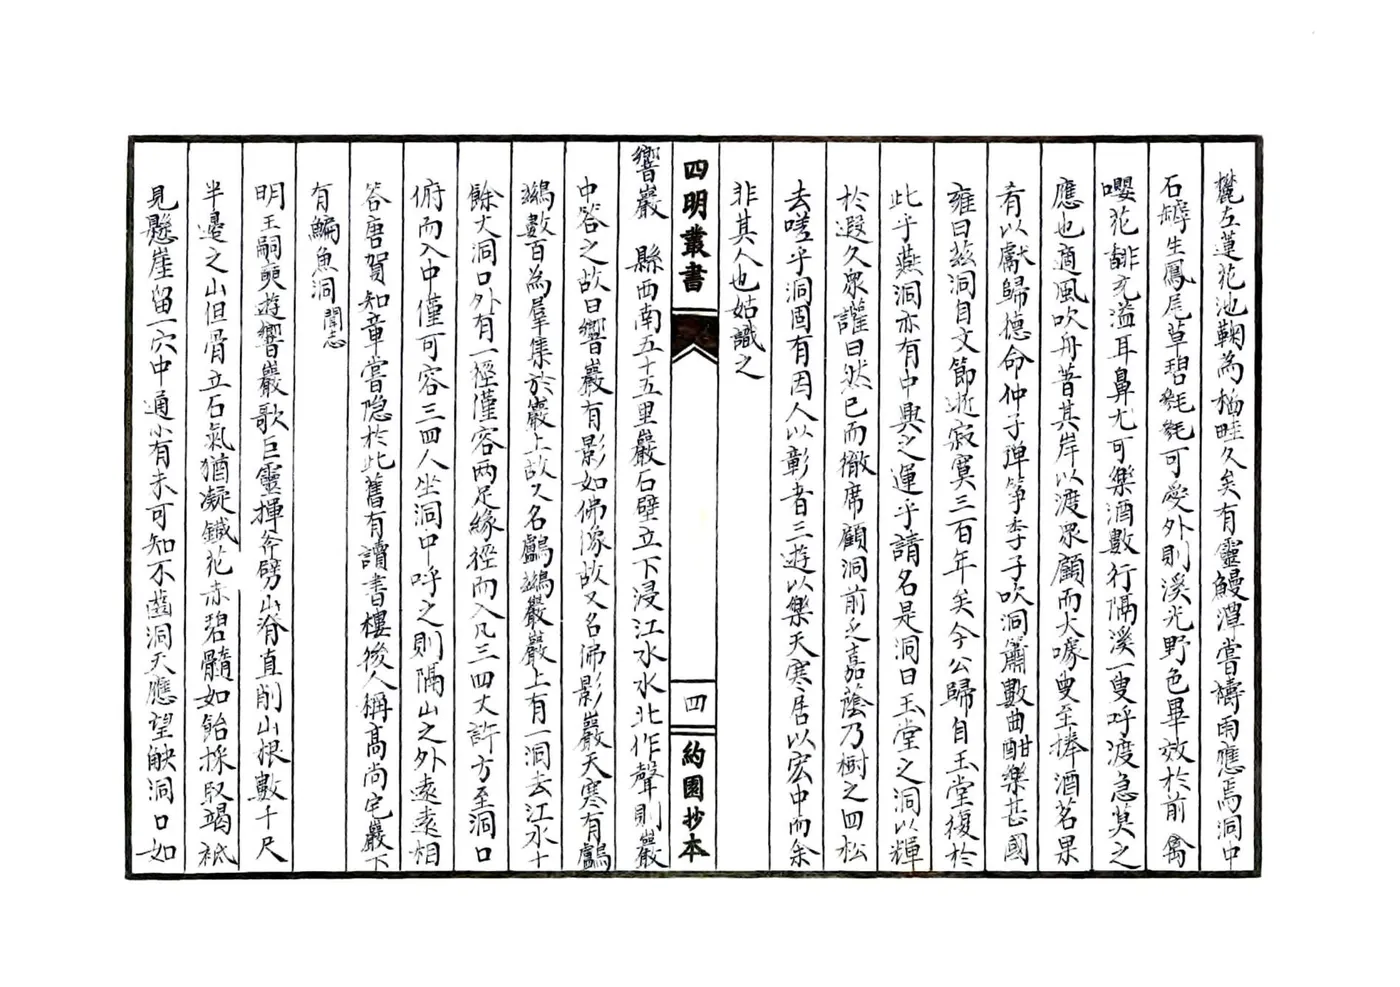 麓左蓮花池鞠為畦久矣有靈鰻潭嘗禱雨應焉洞中
石罅生鳳尾草碧毵毵可愛外則溪光野色畢效於前禽
嚶花馡充溢耳鼻尤可樂酒數行隔溪一叟呼渡急莫之
應也適風吹舟著其岸以渡眾顧而大噱叟至捧酒茗果
肴以獻歸德命仲子彈箏季子吹洞簫數曲酣樂甚國
雍曰茲洞自文節逝寂寞三百年矣今公歸自玉堂復於
此乎燕洞亦有中興之運乎請名是洞曰玉堂之洞以輝
於遐久眾讙曰然已而撤席顧洞前乏嘉蔭乃樹之四松
去嗟乎洞固有因人以彰者三遊以樂天寒居以宏中而余
非其人也姑識之
四明叢書
四
約園抄本
響巖 縣西南五十五里巖石壁立下浸江水水北作聲則巖
中答之故曰響巖有影如佛像故又名佛影巖天寒有鸕
鷀數百為羣集於巖上故又名鸕鷀巖巖上有一洞去江水十
餘丈洞口外有一徑僅容兩足緣徑而入凡三四丈許方至洞口
俯而入中僅可容三四人坐洞中呼之則隔山之外遠遠相
答唐賀知章嘗隱於此舊有讀書樓後人稱高尚宅巖下
有鯿魚洞聞志
明王嗣奭遊響巖歌巨靈揮斧劈山脊直削山根數千尺
半邊之山但骨立石氣猶凝鍼花赤碧髓如飴採取竭祇
見懸崖留一穴中通小有未可知不齒洞天應望觖洞口如